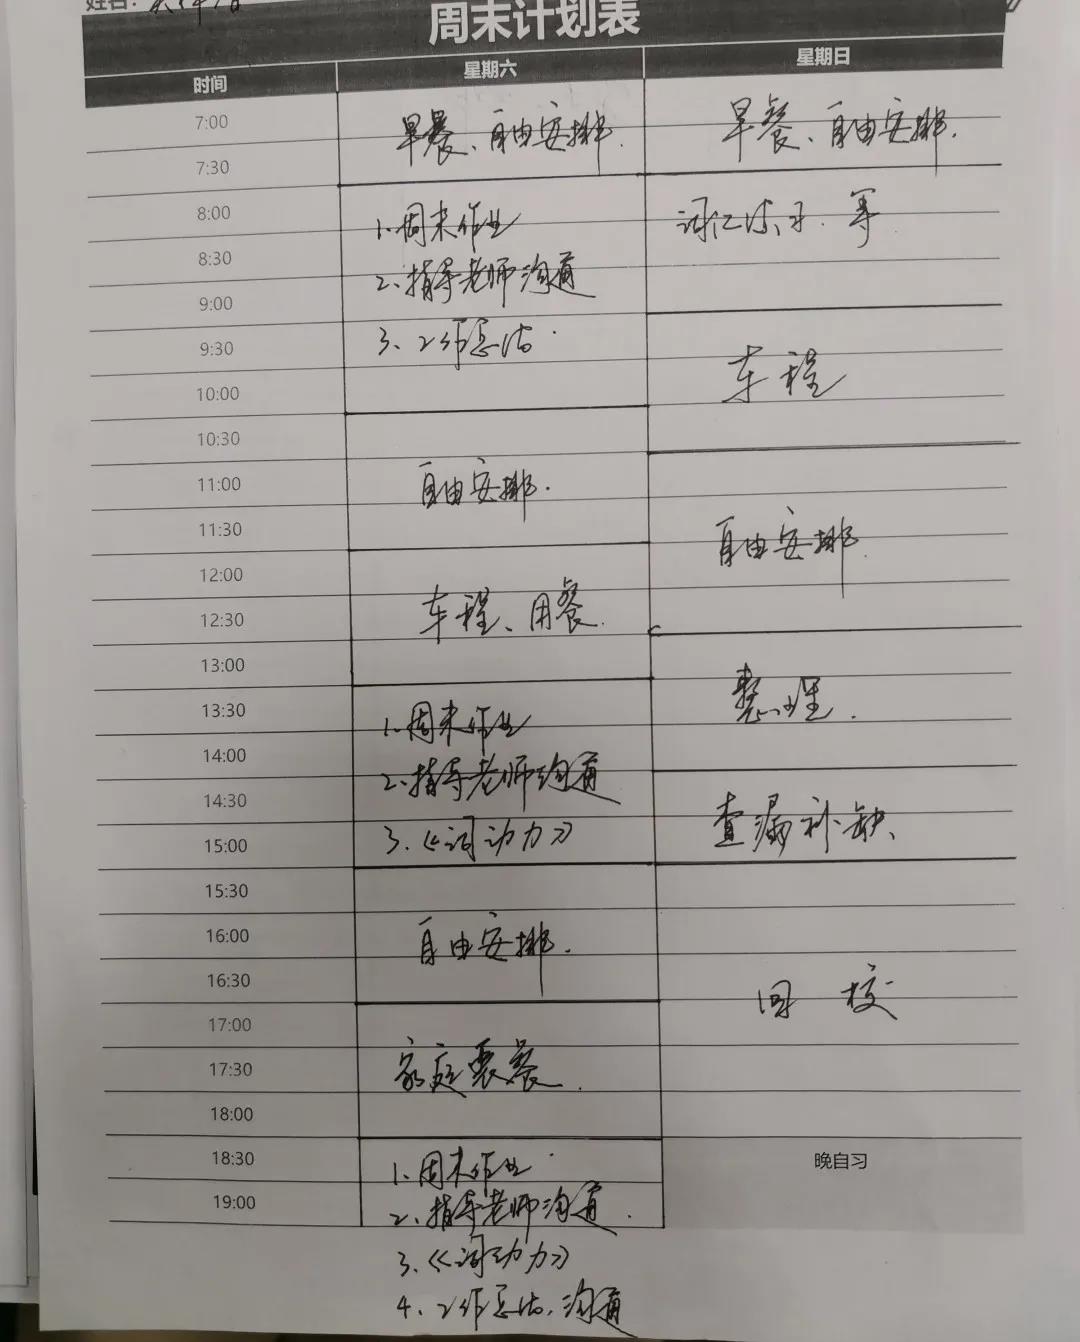 姓名：
周末计划表
时间 星期六 星期日
7:00 早餐、自由安排. 早餐、自由安排.
7:30
8:00 1.周末作业 词汇练习.等
8:30 2.指导老师沟通
9:00
9:30 3、工作总结. 车程
10:00
10:30
11:00 自由安排.
11:30 自由安排.
12:00
12:30 车程、用餐.
13:00
13:30 1.周末作业 整理.
14:00 2.指导老师沟通
14:30 查漏补缺、
15:00 3.《词动力》
15:30
16:00 自由安排.
16:30 回校
17:00
17:30 家庭聚餐.
18:00
18:30 1、周末作业 晚自习
19:00 2、指导老师沟通.
3、《词动力》
4、工作总结、沟通